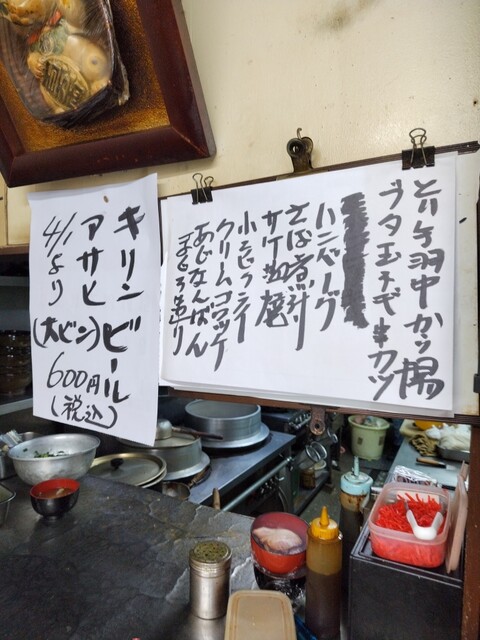 とり手羽中カラ揚
ブタ玉ネギ串カツ
ハンバーグ
さば煮付
サケ塩焼
小エビフライ
クリームコロッケ
あじなんばん
まぐろ造り
キリン
アサヒ
ビール
4/1より
(大ビン)
600円
(税込)